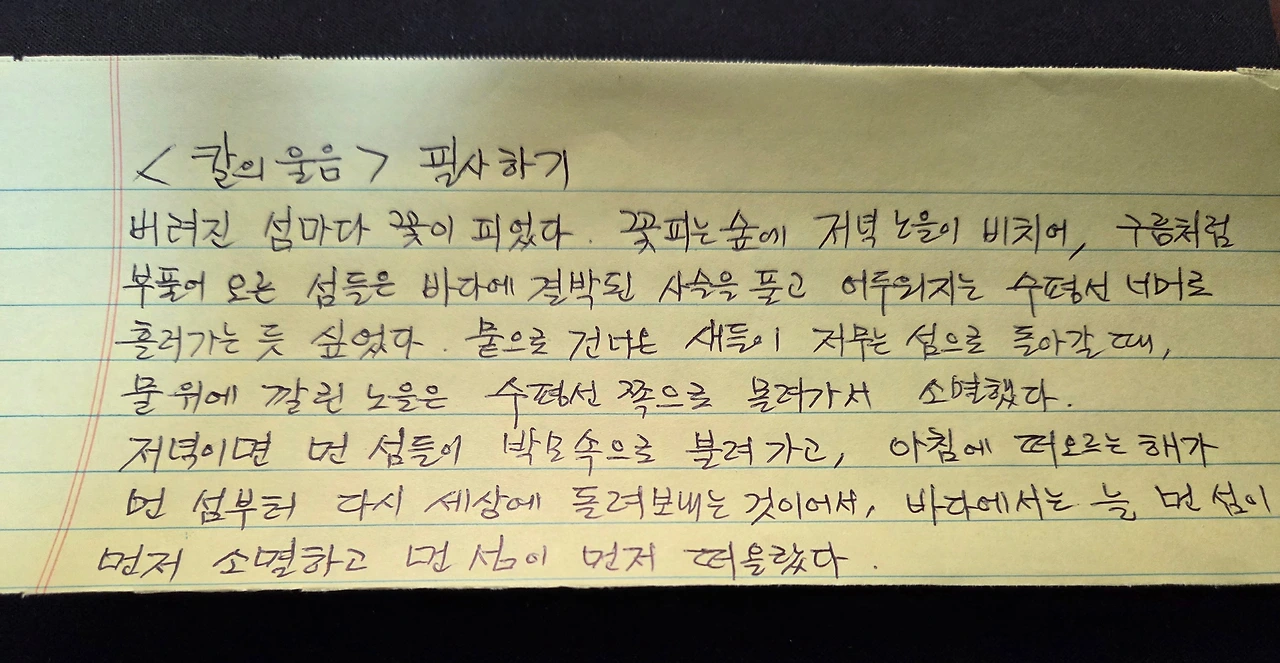 < 칼의 울음 > 필사하기
버려진 섬마다 꽃이 피었다. 꽃피는 숲에 저녁 노을이 비치어, 구름처럼
부풀어 오른 섬들은 바다에 결박된 사슬을 풀고 어두워지는 수평선 너머로
흘러가는 듯 싶었다. 뭍으로 건너온 새들이 저무는 섬으로 돌아갈 때,
물 위에 깔린 노을은 수평선 쪽으로 몰려가서 소멸했다.
저녁이면 먼 섬들이 박모 속으로 불려 가고, 아침에 떠오르는 해가
먼 섬부터 다시 세상에 돌려보내는 것이어서, 바다에서는 늘 먼 섬이
먼저 소멸하고 먼 섬이 먼저 떠올랐다.